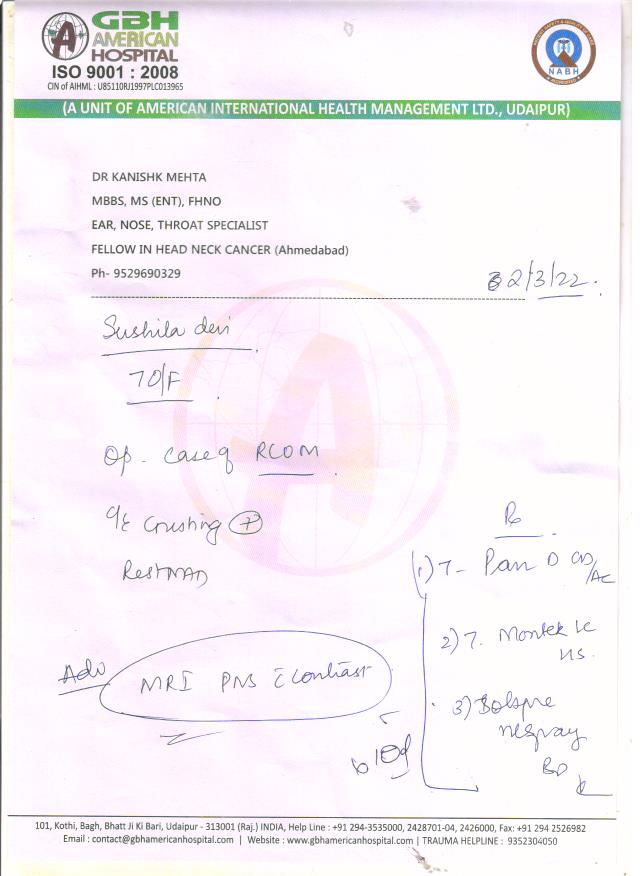 GBH
AMERICAN
HOSPITAL
ISO 9001 : 2008
CIN of AIHML : U85110RJ1997PLC013965
NABH
(A UNIT OF AMERICAN INTERNATIONAL HEALTH MANAGEMENT LTD., UDAIPUR)
DR KANISHK MEHTA
MBBS, MS (ENT), FHNO
EAR, NOSE, THROAT SPECIALIST
FELLOW IN HEAD NECK CANCER (Ahmedabad)
Ph- 9529690329
2/3/22.
Sushila devi
70/F
Op. case of RCOM
O/E Crusting +
Rest NAD
Adv
MRI PNS c̄ contrast
Rx
1) T- Pan D OD/AC
2) T. Montek LC
HS.
3)
nespray
BD
101, Kothi, Bagh, Bhatt Ji Ki Bari, Udaipur - 313001 (Raj.) INDIA, Help Line : +91 294-3535000, 2428701-04, 2426000, Fax: +91 294 2526982
Email : contact@gbhamericanhospital.com | Website : www.gbhamericanhospital.com | TRAUMA HELPLINE : 9352304050